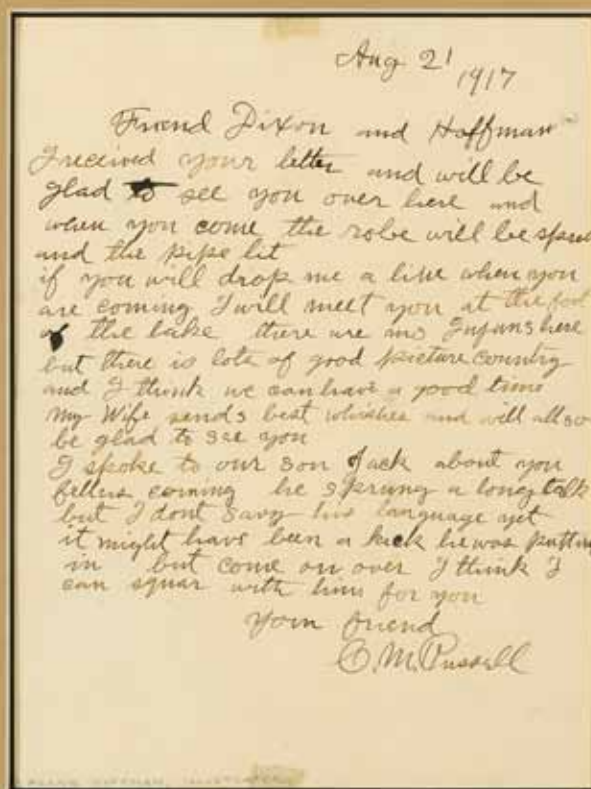 Aug 21
1917
Friend Dixon and Hoffman
I received your letter and will be
glad to see you over here and
when you come the robe will be spred
and the pipe lit
if you will drop me a line when you
are coming I will meet you at the foot
of the lake there are no Injuns here
but there is lots of good picture country
and I think we can have a good time
My Wife sends best whishes and will allso
be glad to see you
I spoke to our son Jack about you
fellers coming he sprung a long talk
but I dont savy his language yet
it might have been a kick he was putting
in but come on over I think I
can squar with him for you
Your friend
C. M. Russell